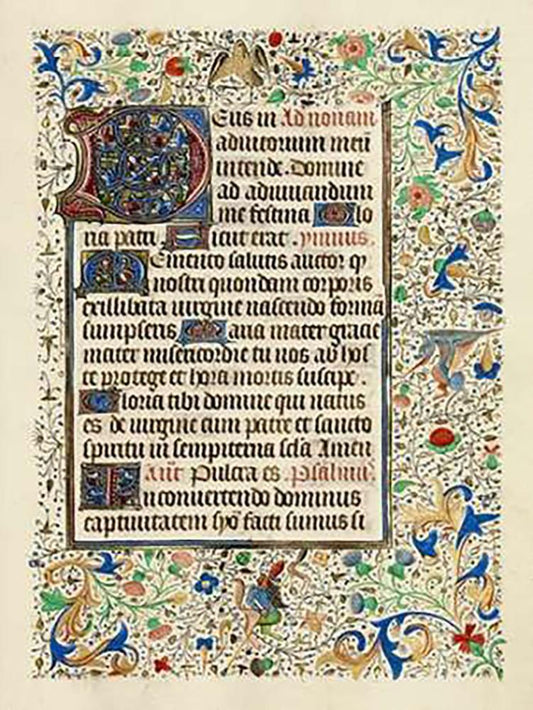 Deus in Ad nonam
adiutorium meū
intende. Domine
ad adiuuandum
me festina Glo
ria patri Sicut erat. ymnus.
Memento salutis auctor q̄
nostri quondam corporis
ex illibata uirgine nascendo formā
sumpseris Maria mater gracie
mater misericordie tu nos ab hos
te protege et hora mortis suscipe.
Gloria tibi domine qui natus
es de uirgine cum patre et sancto
spiritu in sempiterna sc̄la Amen
ant̄ Pulcra es. Psalmus.
In conuertendo dominus
captiuitatem syō facti sumus si